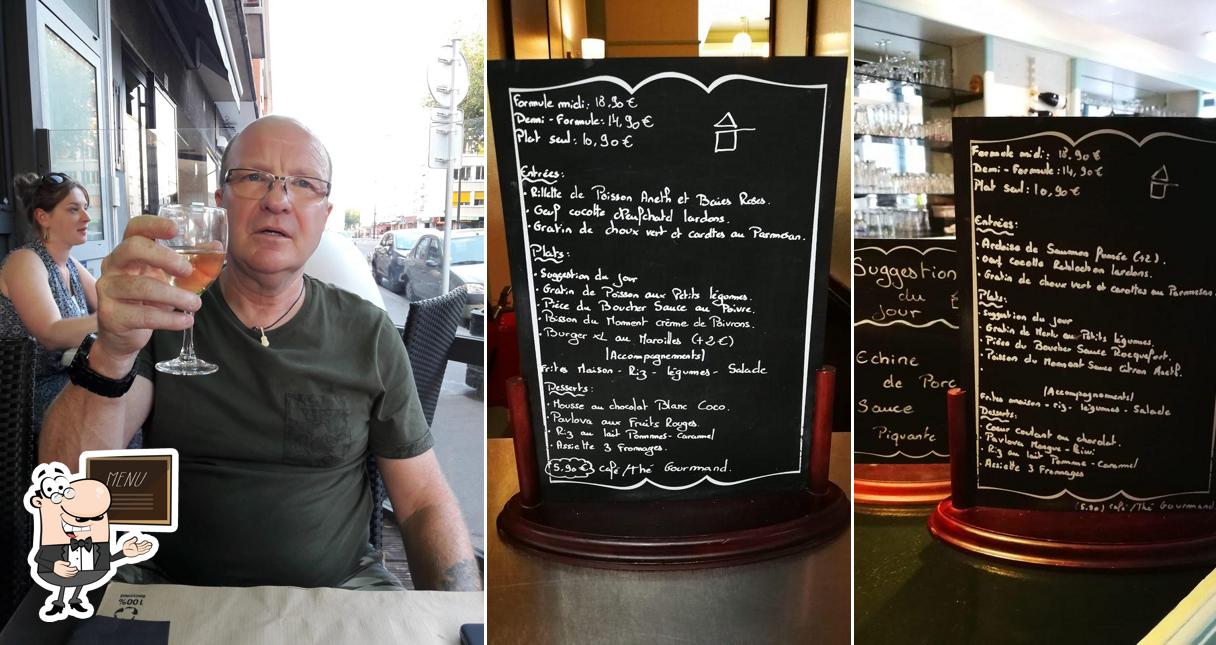 MENU
100%
Formule midi: 18,90€
Demi-Formule: 14,90€
Plat seul: 10,90€
Entrées:
• Rillette de Poisson Aneth et Baies Roses.
• Oeuf cocotte d'Neufchatel lardons.
• Gratin de choux vert et carottes au Parmesan.
Plats:
• Suggestion du jour
• Gratin de Poisson aux Petits légumes.
• Pièce du Boucher Sauce au Poivre.
• Poisson du Moment crème de Poivrons.
• Burger XL au Maroilles (+2€)
|Accompagnements|
Frites Maison - Riz - légumes - Salade
Desserts:
• Mousse au chocolat Blanc Coco.
• Pavlova aux Fruits Rouges.
• Riz au lait Pommes-Caramel
• Assiette 3 Fromages.
(5,90€) café/thé Gourmand.
Suggestion
du
jour
Echine
de Porc
Sauce
Piquante
Formule midi: 18,90€
Demi-Formule: 14,90€
Plat seul: 10,90€
Entrées:
• Ardoise de Saumon Fumée (+2).
• Oeuf cocotte Reblochon lardons.
• Gratin de choux vert et carottes au Parmesan.
Plats:
• Suggestion du jour
• Gratin de Merlu aux Petits légumes.
• Pièce du Boucher Sauce Rocquefort.
• Poisson du Moment Sauce Citron Aneth.
|Accompagnements|
Frites maison - riz - légumes - Salade
Desserts:
• Coeur coulant au chocolat.
• Pavlova Mangue-Kiwi
• Riz au lait Pomme-Caramel
• Assiette 3 Fromages
(5,90) café/thé Gourmand